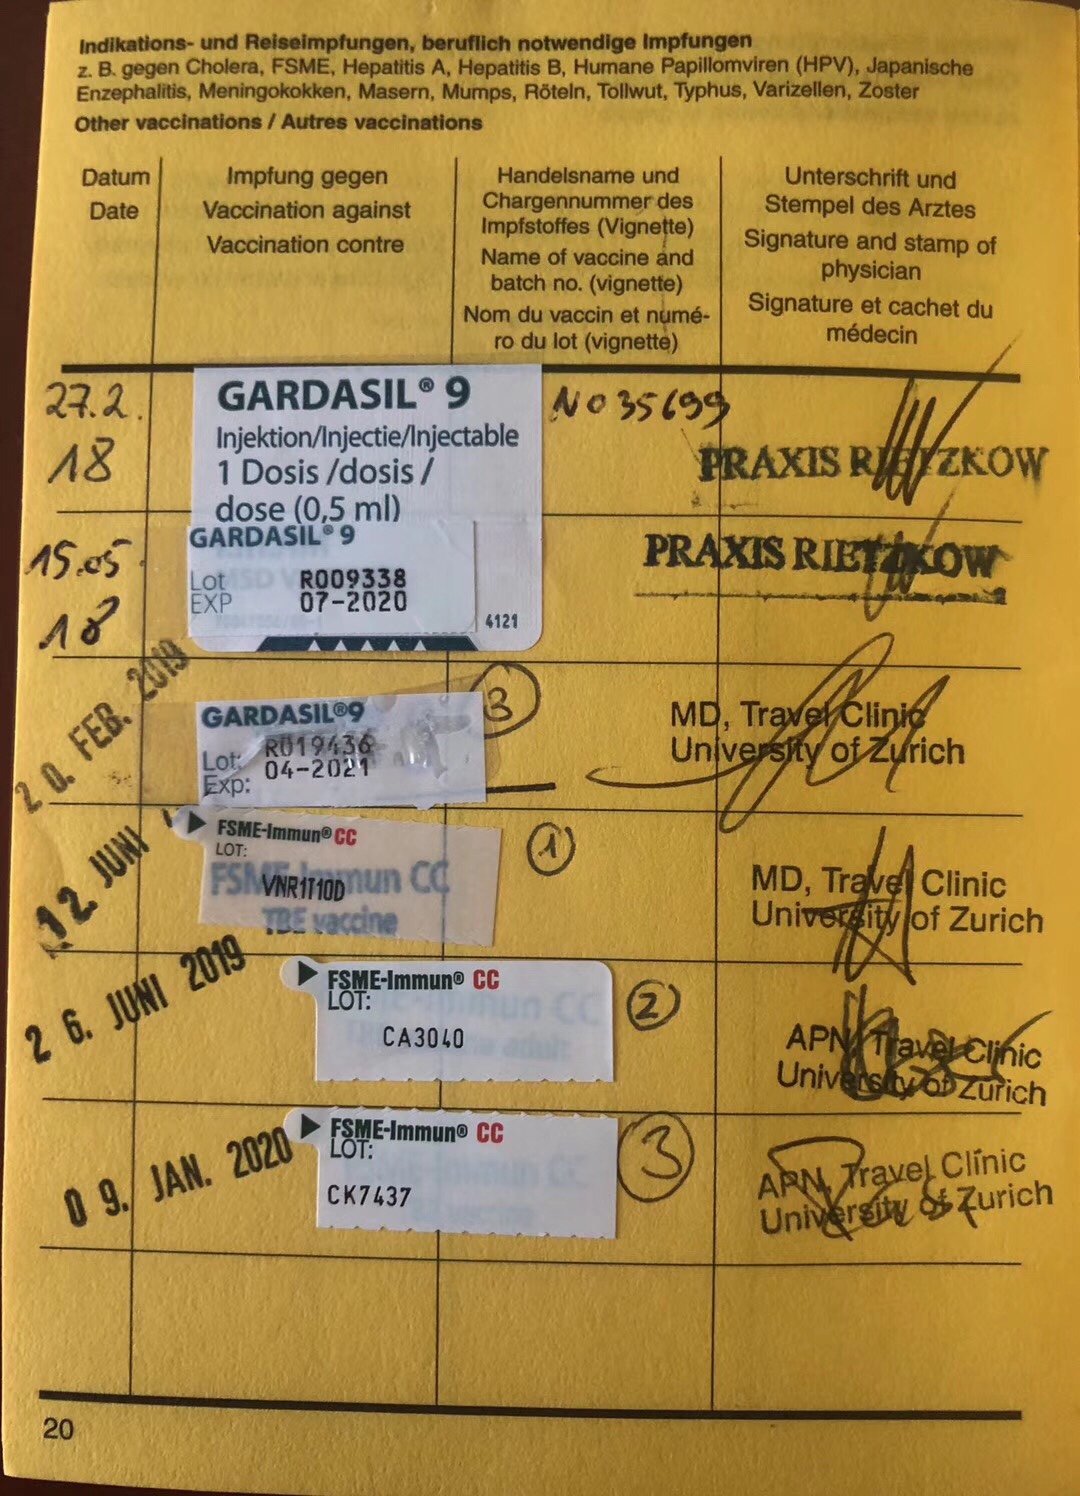 Indikations- und Reiseimpfungen, beruflich notwendige Impfungen
z. B. gegen Cholera, FSME, Hepatitis A, Hepatitis B, Humane Papillomviren (HPV), Japanische
Enzephalitis, Meningokokken, Masern, Mumps, Röteln, Tollwut, Typhus, Varizellen, Zoster
Other vaccinations / Autres vaccinations
Datum
Date
Impfung gegen
Vaccination against
Vaccination contre
Handelsname und
Chargennummer des
Impfstoffes (Vignette)
Name of vaccine and
batch no. (vignette)
Nom du vaccin et numé-
ro du lot (vignette)
Unterschrift und
Stempel des Arztes
Signature and stamp of
physician
Signature et cachet du
médecin
27.2.
18
GARDASIL® 9
Injektion/Injectie/Injectable
1 Dosis /dosis /
dose (0,5 ml)
N035699
PRAXIS RIETZKOW
15.05.
18
GARDASIL® 9
Lot R009338
EXP 07-2020
4121
PRAXIS RIETZKOW
20. FEB. 2019
GARDASIL®9
Lot: R019436
Exp: 04-2021
3
MD, Travel Clinic
University of Zurich
12. JUNI
FSME-Immun® CC
LOT:
VNR1T10D
FSME-Immun CC
TBE vaccine
1
MD, Travel Clinic
University of Zurich
26. JUNI 2019
FSME-Immun® CC
LOT:
CA3040
2
APN, Travel Clinic
University of Zurich
09. JAN. 2020
FSME-Immun® CC
LOT:
CK7437
3
APN, Travel Clinic
University of Zurich
20